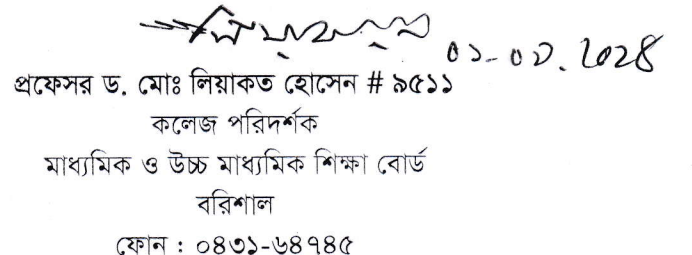 ০১-০৩.২০২৪
প্রফেসর ড. মোঃ লিয়াকত হোসেন # ৯৫১১
কলেজ পরিদর্শক
মাধ্যমিক ও উচ্চ মাধ্যমিক শিক্ষা বোর্ড
বরিশাল
ফোন : ০৪৩১-৬৪৭৪৫